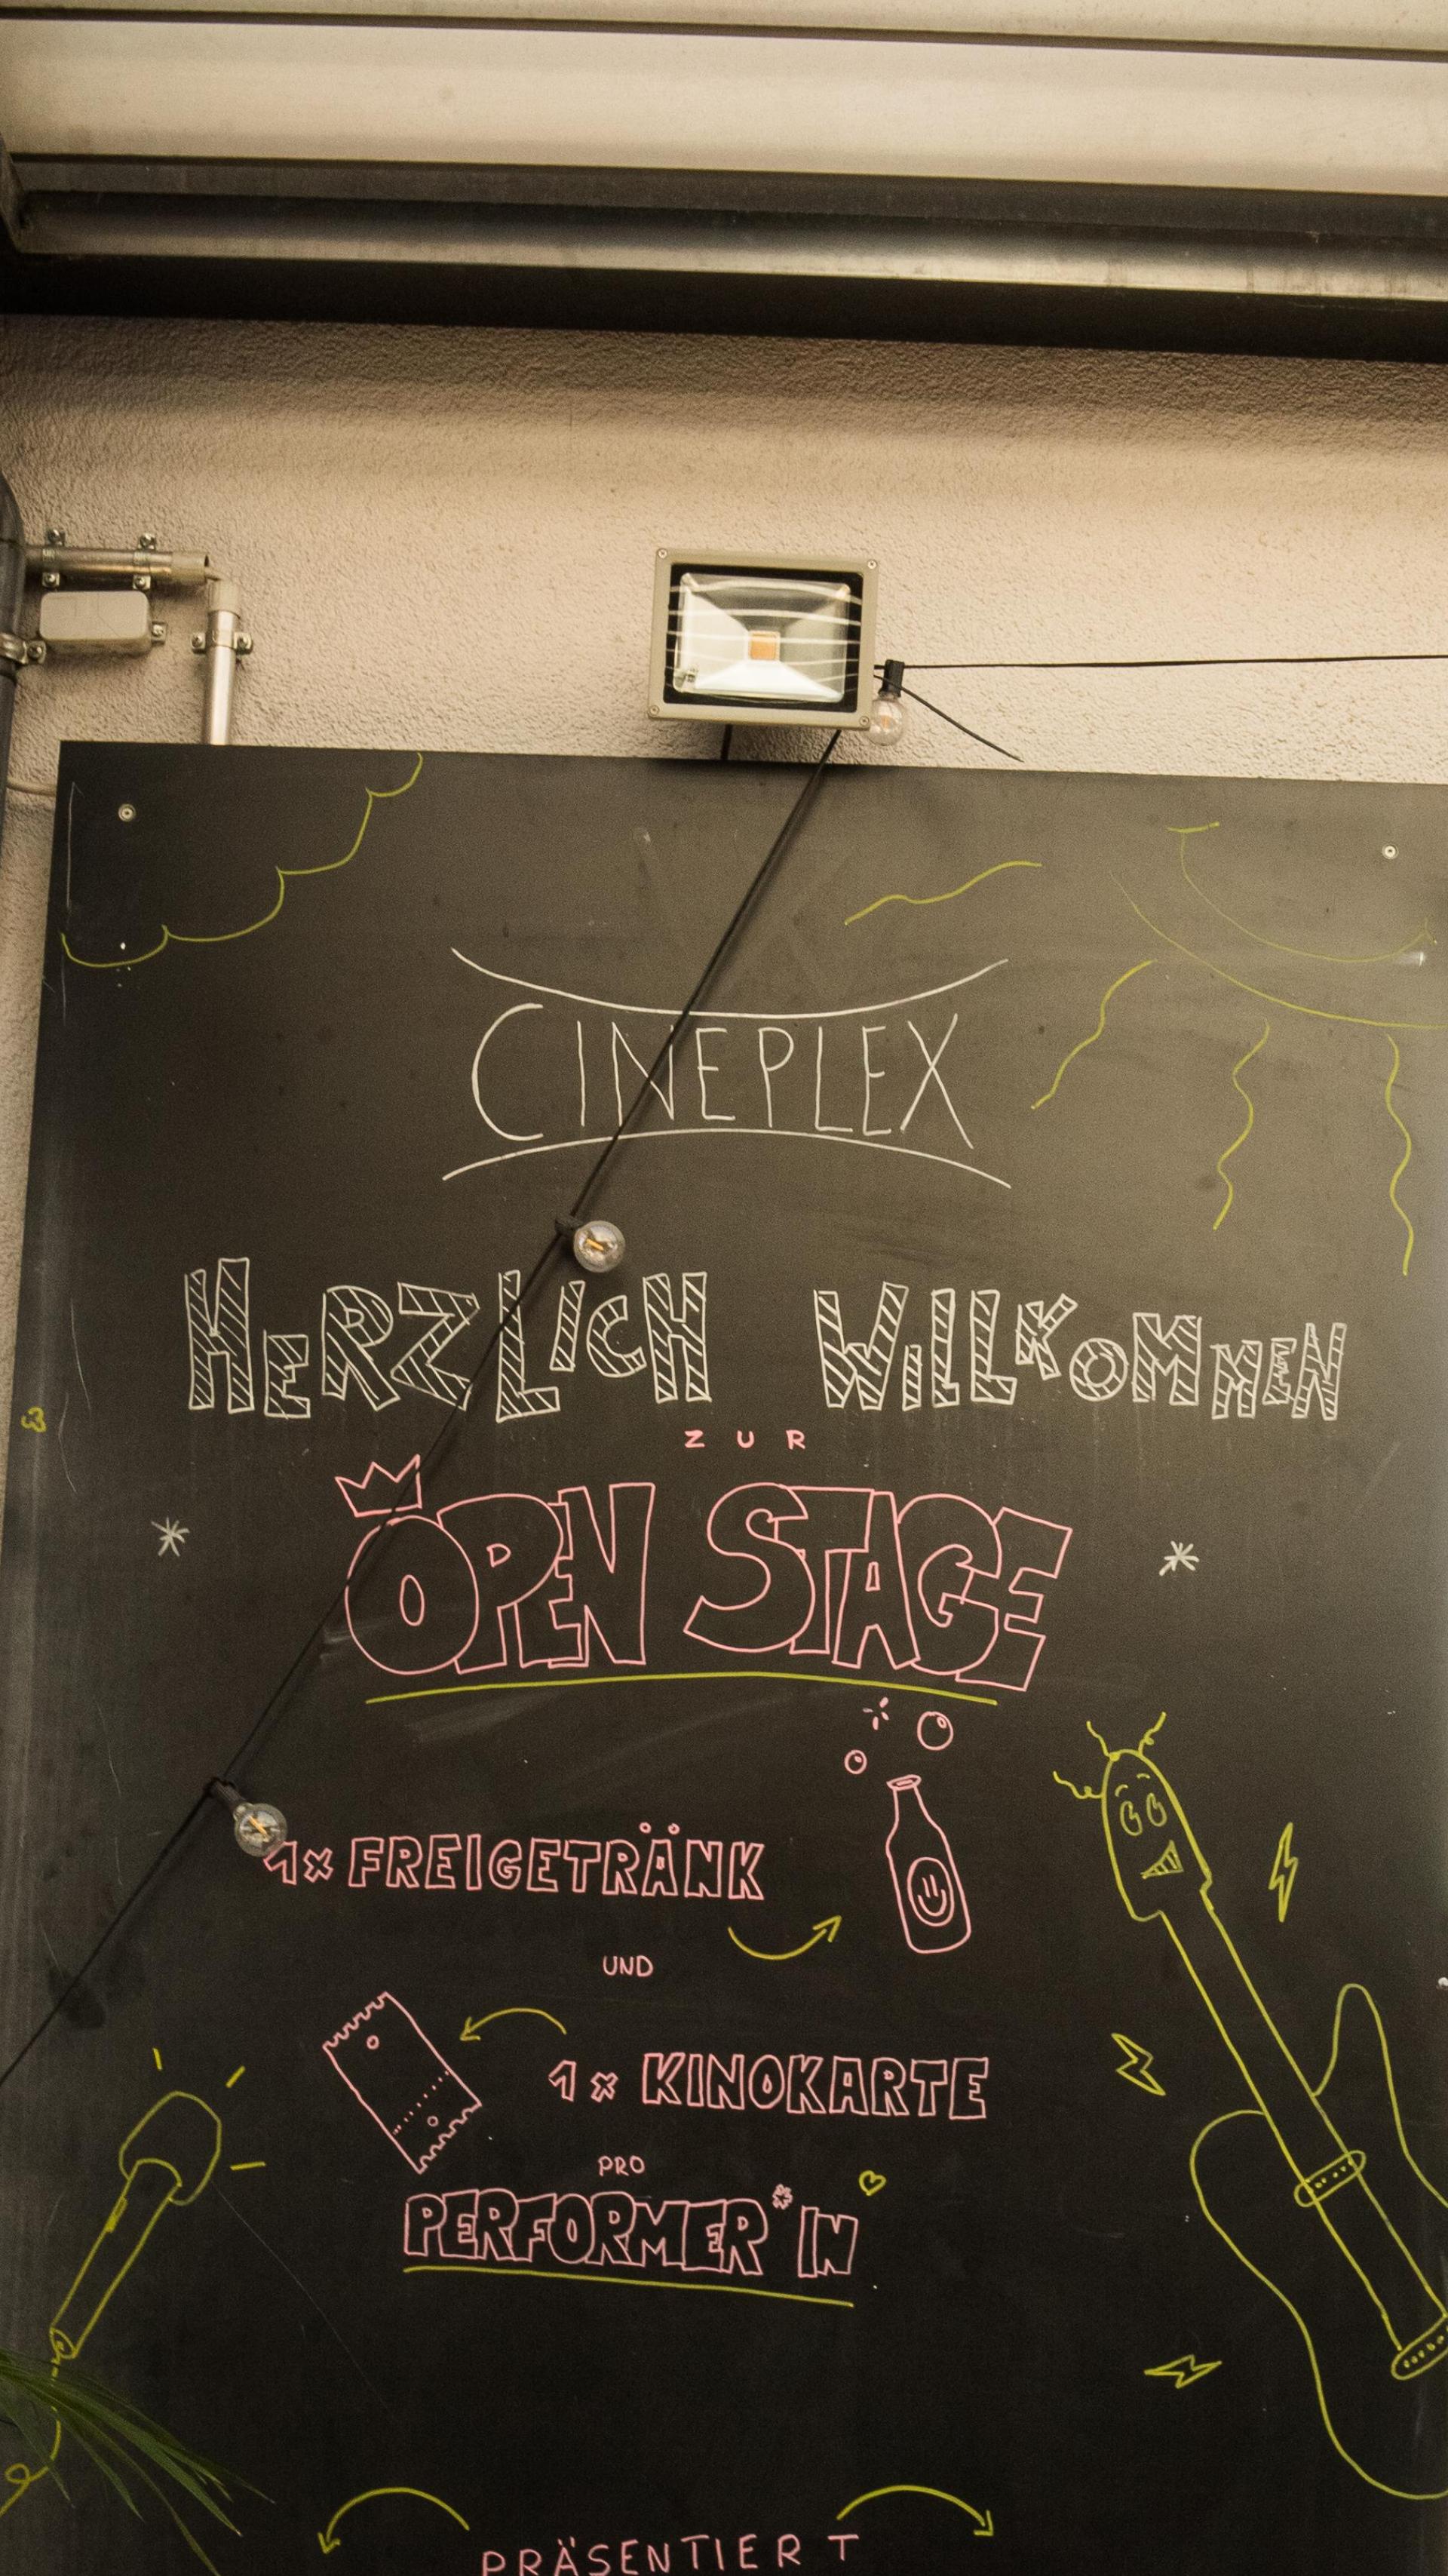 CINEPLEX
HERZLICH WILLKOMMEN
ZUR
OPEN STAGE
1x FREIGETRÄNK
UND
1x KINOKARTE
PRO
PERFORMER*IN
PRÄSENTIERT